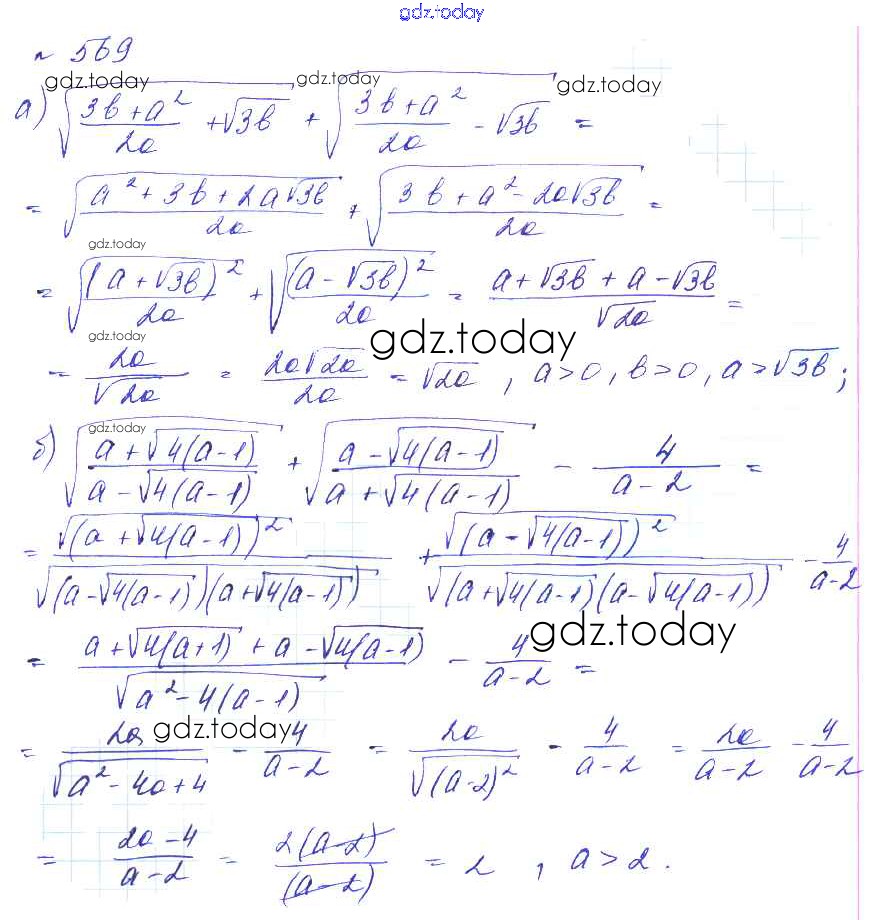 gdz.today
н 569
gdz.today gdz.today gdz.today
а) √((3b + a²)/2a + √3b) + √((3b + a²)/2a - √3b) =
= √((a² + 3b + 2a√3b)/2a) + √((3b + a² - 2a√3b)/2a) =
gdz.today
= √((a + √3b)²/2a) + √((a - √3b)²/2a) = (a + √3b + a - √3b)/√2a =
gdz.today gdz.today
= 2a/√2a = 2a√2a/2a = √2a , a > 0 , b > 0 , a > √3b ;
gdz.today
б) √((a + √4(a-1))/(a - √4(a-1))) + √((a - √4(a-1))/(a + √4(a-1))) - 4/(a-2) =
= √(a + √4(a-1))²/√((a - √4(a-1))(a + √4(a-1))) + √(a - √4(a-1))²/√((a + √4(a-1)(a - √4(a-1))) - 4/(a-2)
= (a + √4(a+1) + a - √4(a-1))/√(a² - 4(a-1)) - 4/(a-2) =
gdz.today
gdz.today
= 2a/√(a² - 4a + 4) - 4/(a-2) = 2a/√(a-2)² - 4/(a-2) = 2a/(a-2) - 4/(a-2)
= (2a - 4)/(a-2) = 2(a-2)/(a-2) = 2 , a > 2 .